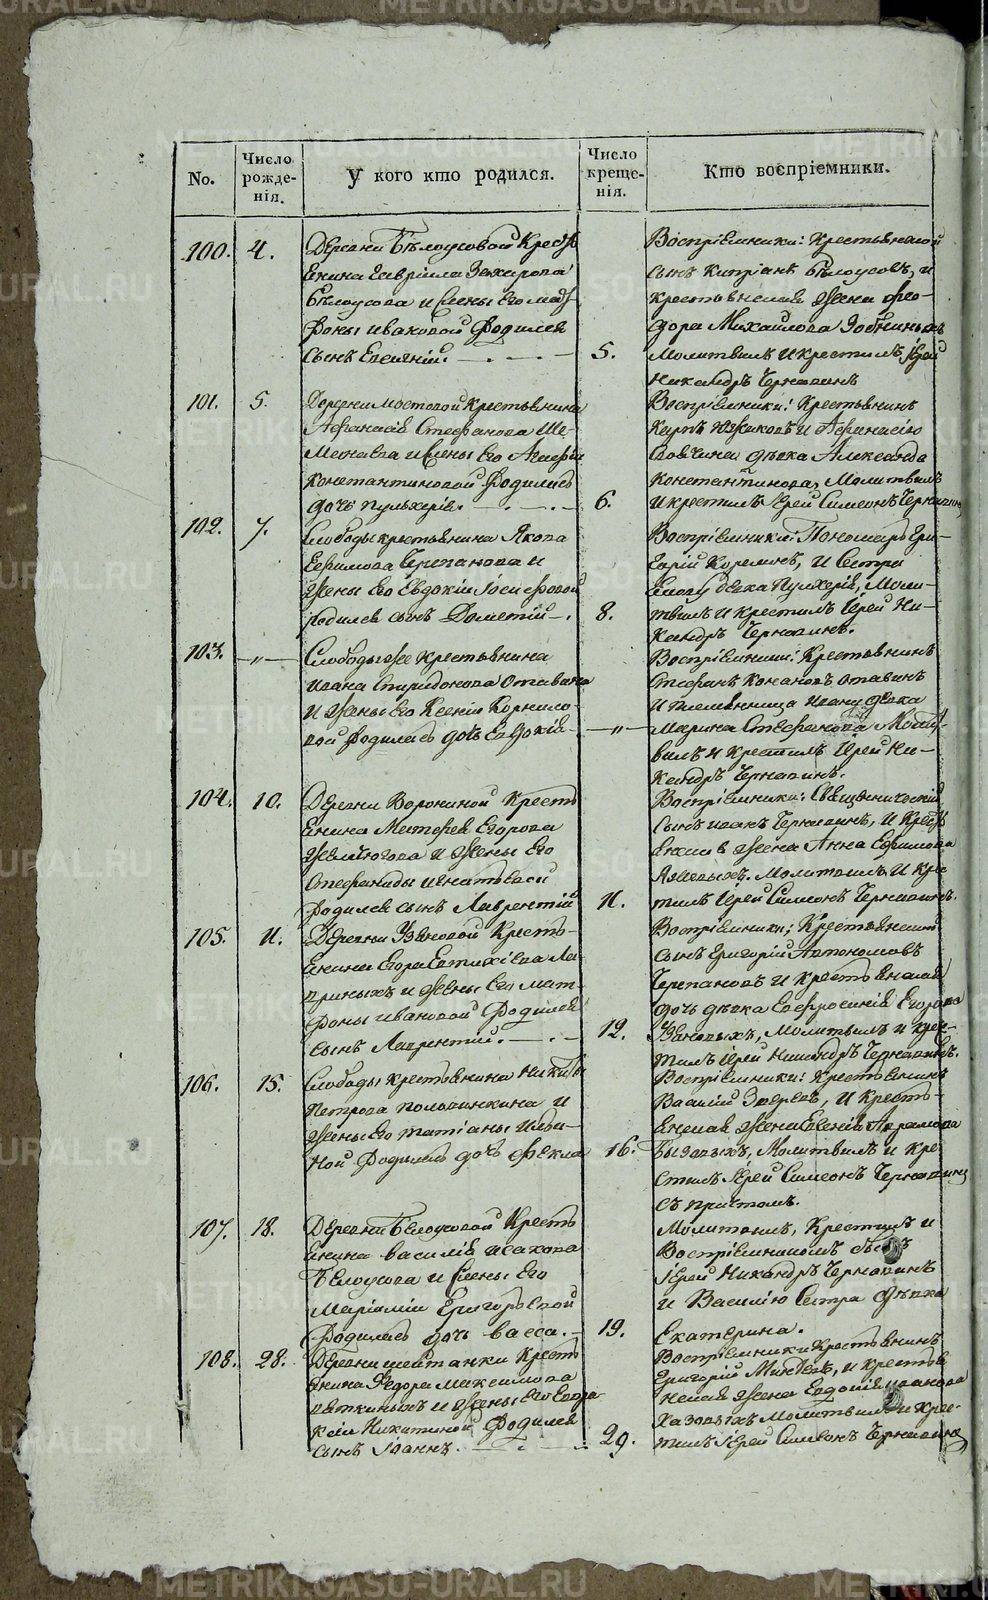 METRIKI.GASU-URAL.RU
No.
Число рожде-нія.
У кого кто родился.
Число креще-нія.
Кто воспріемники.
100.
4.
Деревни Бѣлоусовой Крестъ
янина Гавріила Захарова
Бѣлоусова и жены Его Мат
роны Ивановой Родился
сынъ Евгеній.
5.
Воспріемники: Крестьянской
сынъ Кипріанъ Бѣлоусовъ, и
крестьянская жена Фео-
дора Михайлова Зобниныхъ
Молитвилъ и крестилъ Іерей
Никандръ Чернавинъ
101.
5.
Деревни Мостовой крестьянина
Афанасія Стефанова Ше-
и жены Его Агафіи
Константиновой Родилась
дочь Пульхерія.
6.
Воспріемники: Крестьянинъ
Карпъ и Афанасію
дѣвка Александра
Константинова, Молитвилъ
и крестилъ Іерей Симеонъ Чернавинъ
102.
7.
Слободы крестьянина Якова
Ефимова Черпанова и
жены Его Евдокіи Іосифовой
родился сынъ Дометій.
8.
Воспріемники: Пономарь Гри-
горій Корелинъ, и Сестра
Якову дѣвка Пулхерія, Моли-
твилъ и крестилъ Іерей Ни-
кандръ Чернавинъ.
103.
"
Слободы же крестьянина
Ивана Спиридонова Отавина
и жены Его Ксеніи Корнило-
вой Родилась дочь Евдокія.
"
Воспріемники: Крестьянинъ
Стефанъ Отавинъ
и племянница Ивану дѣвка
Марина Стефанова Молит-
вилъ и крестилъ Іерей Ни-
кандръ Чернавинъ.
104.
10.
Деревни Ворониной Кресть
янина Матфея Егорова
и жены Его
Стефаниды Игнатьевой
Родился сынъ Лаврентій
11.
Воспріемники: Священническій
сынъ Иванъ Чернавинъ, и Крестъ
янская жена Анна Ефимова
Молитвилъ и Кре
тилъ Іерей Симеонъ Чернавинъ.
105.
11.
Деревни Узяновой Кресть-
янина Егора Евтихіева Ла-
приныхъ и жены Его Мат-
роны Ивановой Родился
сынъ Лаврентій.
12.
Воспріемники: Крестьянской
сынъ Григорій Автономовъ
Черпановъ и Крестьянская
дочь дѣвка Евфросинія Егорова
Узяновыхъ, Молитвилъ и кре-
тилъ Іерей Никандръ Чернавинъ.
106.
15.
Слободы крестьянина Никиты
Петрова Половинкина и
жены Его Татіаны Ильи-
ной Родилась дочь Фекла
16.
Воспріемники: Крестьянинъ
Василій Зверевъ, и Кресть-
янская жена Евгенія Аврамова
Молитвилъ и Кре
стилъ Іерей Симеонъ Чернавинъ
съ причтомъ.
107.
18.
Деревни Бѣлоусовой Кресть
янина Василія Исакова
Бѣлоусова и жены Его
Маріаміи Григорьевой
Родилась дочь Васса.
19.
Молитвилъ, Крестилъ и
Воспріемникомъ былъ
Іерей Никандръ Чернавинъ
и Василію Сестра дѣвка
Екатерина.
108.
28.
Деревни Шейтанки Кресть
янина Федора Максимова
Пяткиныхъ и жены Его Евпра-
ксіи Никитиной Родился
сынъ Іоаннъ.
29.
Воспріемники Крестьянинъ
Григорій и крестья
нская жена Евдокія Иванова
Молитвилъ и кре-
тилъ Іерей Симеонъ Чернавинъ